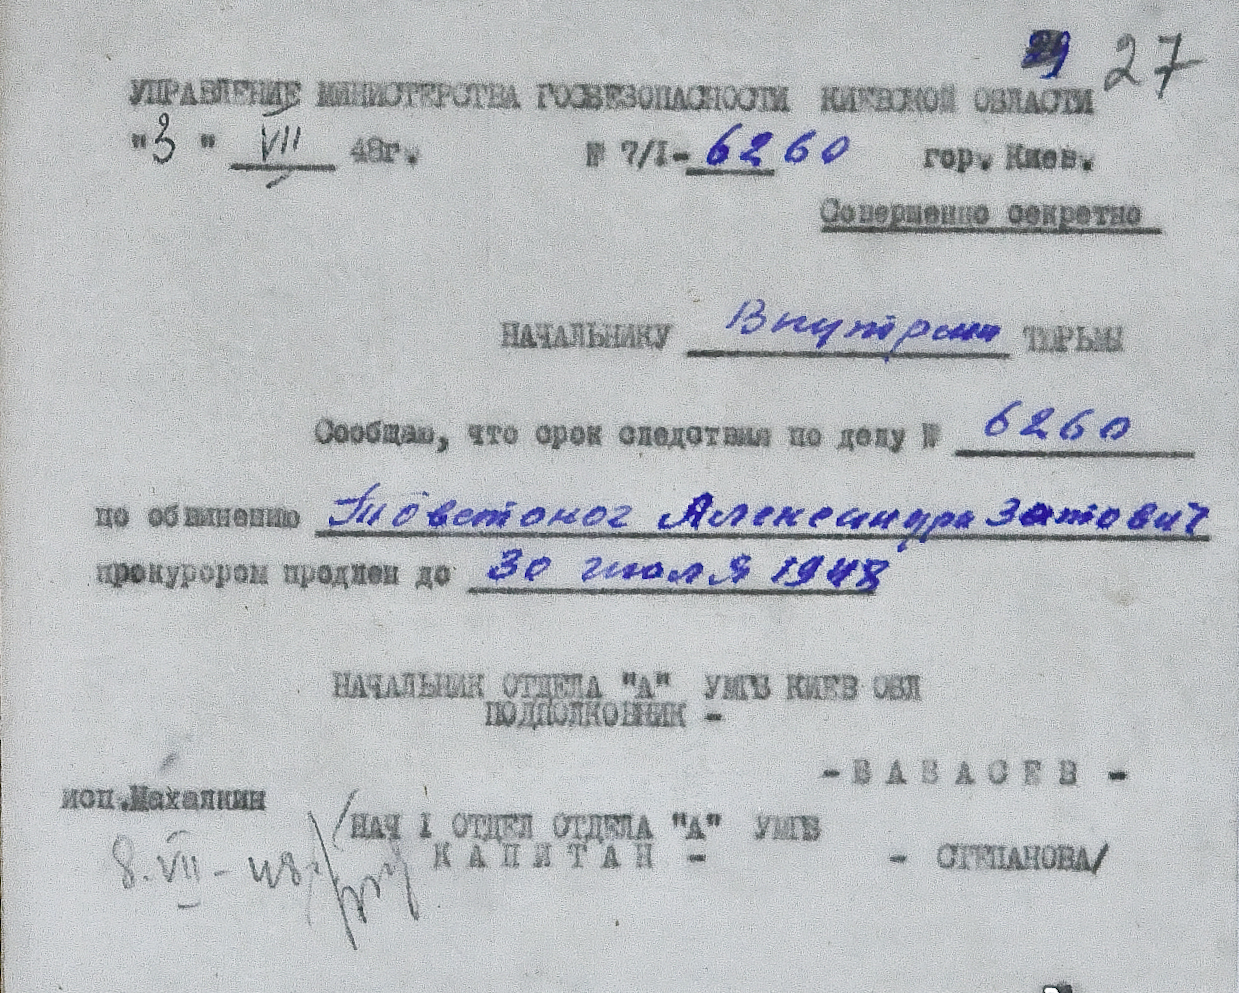 27
УПРАВЛЕНИЕ МИНИСТЕРСТВА ГОСБЕЗОПАСНОСТИ КИЕВСКОЙ ОБЛАСТИ
"3" VII 48г. № 7/I-6260 гор. Киев.
Совершенно секретно
НАЧАЛЬНИКУ Внутрен ТЮРЬМЫ
Сообщаю, что срок следствия по делу № 6260
по обвинению Товстоног Александра Затович
прокурором продлен до 30 июля 1948
НАЧАЛЬНИК ОТДЕЛА "А" УМГБ КИЕВ ОБЛ
ПОДПОЛКОВНИК -
- В А В А С Е В -
исп.Махалкин
/НАЧ 1 ОТДЕЛ ОТДЕЛА "А" УМГБ
К А П И Т А Н - - СТЕПАНОВА/
8.VII-48